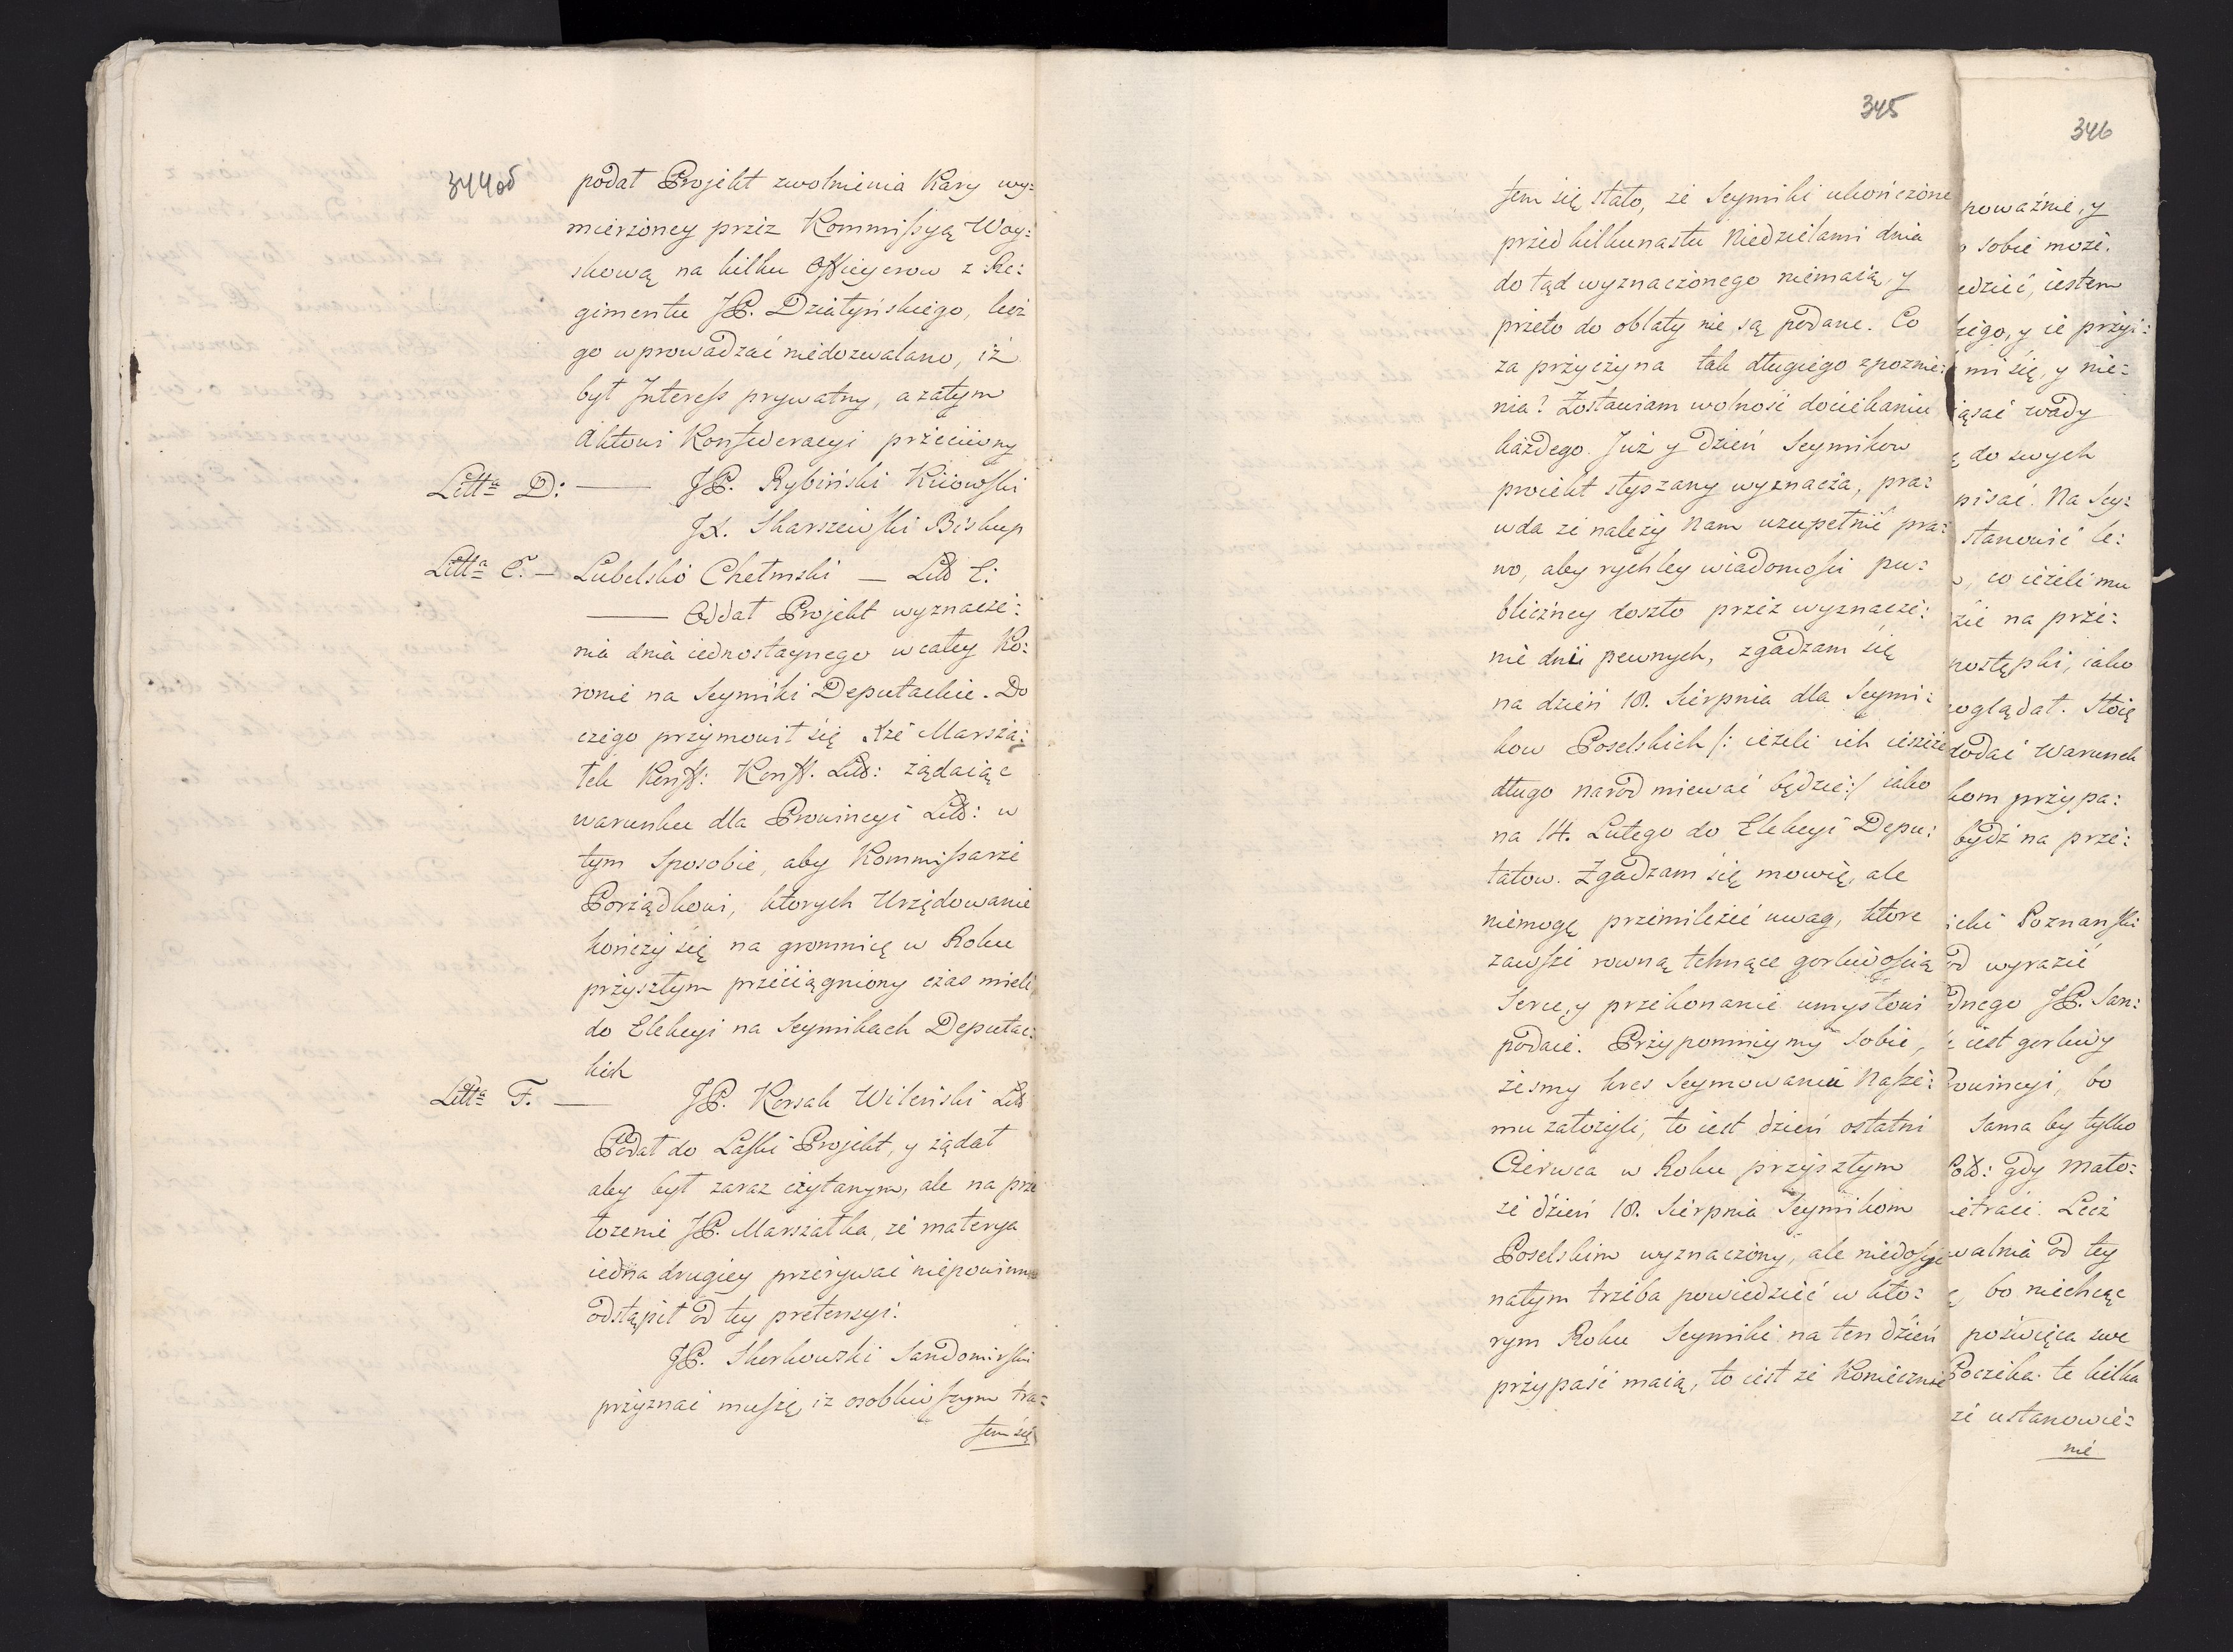 344об
podał Projekt zwolnienia Kary wy:
mierzoney przez Kommissyą Woy:
skową na kilku Officyerow z Re:
gimentu JP. Działyńskiego, lecz
go wprowadzać niedozwalano, iż
był Interess prywatny, a zatym
Aktowi Konfederacyi przeciwny
Litt<u>a</u> D: — JP. Rybiński Kiiowski
JX. Skarszewski Biskup
Litta E. — Lubelsko Chełmski — Litt E:
— Oddał Projekt wyznacze:
nia dnia iednostaynego w całey Ko:
ronie na Seymiki Deputackie. Do
czego przymowił się Xże Marsza:
łek Konff: Konff. Litt: żądaiąc
warunku dla Prowincyi Litt: w
tym sposobie, aby Kommissarze
Porządkowi, ktorych Urzędowanie
kończy się na gromnicę w Roku
przyszłym przeciągniony czas mieli
do Elekcyi na Seymikach Deputac:
kich
Litta F. — JP. Korsak Wileński Litt
Podał do Laski Projekt, y żądał
aby był zaraz czytanym, ale na prze
łożenie JP. Marszałka, że materya
iedna drugiey przerywać niepowinna
odstąpił od tey pretensyi:
JP. Skorkowski Sandomirski
przyznać muszę, iz osobliwszym tra:
fem się
345
fem się stało, że Seymiki ukończone
przed kilkunastu Niedzielami dnia
do tąd wyznaczonego niemaią, y
przeto do oblaty nie są podane. Co
za przyczyna tak długiego zpoznie:
nia? Zostawiam wolność dociekaniu
każdego. Już y dzień Seymikow
proiekt słyszany wyznacza, pra:
wda że należy Nam uzupełnić pra:
wo, aby rychley wiadomości pu:
bliczney doszło przez wyznacze:
nie dnii pewnych, zgadzam się
na dzień 18. Sierpnia dla Seymi:
kow Poselskich /: ieżeli ich ieszcze
długo narod miewać będzie:/ iako
na 14. Lutego do Elekcyi Depu:
tatow. Zgadzam się mowię, ale
niemogę przemilczeć uwag, ktore
zawsze rowną tchnące gorliwością
Serce, y przekonanie umysłowi
podaie. Przypomniymy sobie,
żeśmy kres Seymowaniu Nasze:
mu założyli, to iest dzień ostatni
Czerwca w Roku przyszłym
że dzień 18. Sierpnia Seymikom
Poselskim wyznaczony, ale niedosyć
natym trzeba powiedzieć w kto:
rym Roku Seymiki na ten dzień
przypaść maią, to iest że Koniecznie
346
poważnie, y
sobie może.
edzieć, iestem
kiego, y ie przyi:
mi się, y nie:
iąsać wady
do swych
pisać. Na Sey:
stanowić le:
co ieżeli mu
zie na prze:
postępki, iako
oglądał. Stoię
dodać Warunek
kom przypa:
bydź na prze:
icki Poznanski
od wyrazić
dnego JP. San:
iest gorliwy
rowincyi, bo
Sama by tylko
Litt: gdy Mało:
etraci. Lecz
walnia od tey
bo niechcąc
poświęca swe
Poczeka. te kilka
że ustanowie:
nie